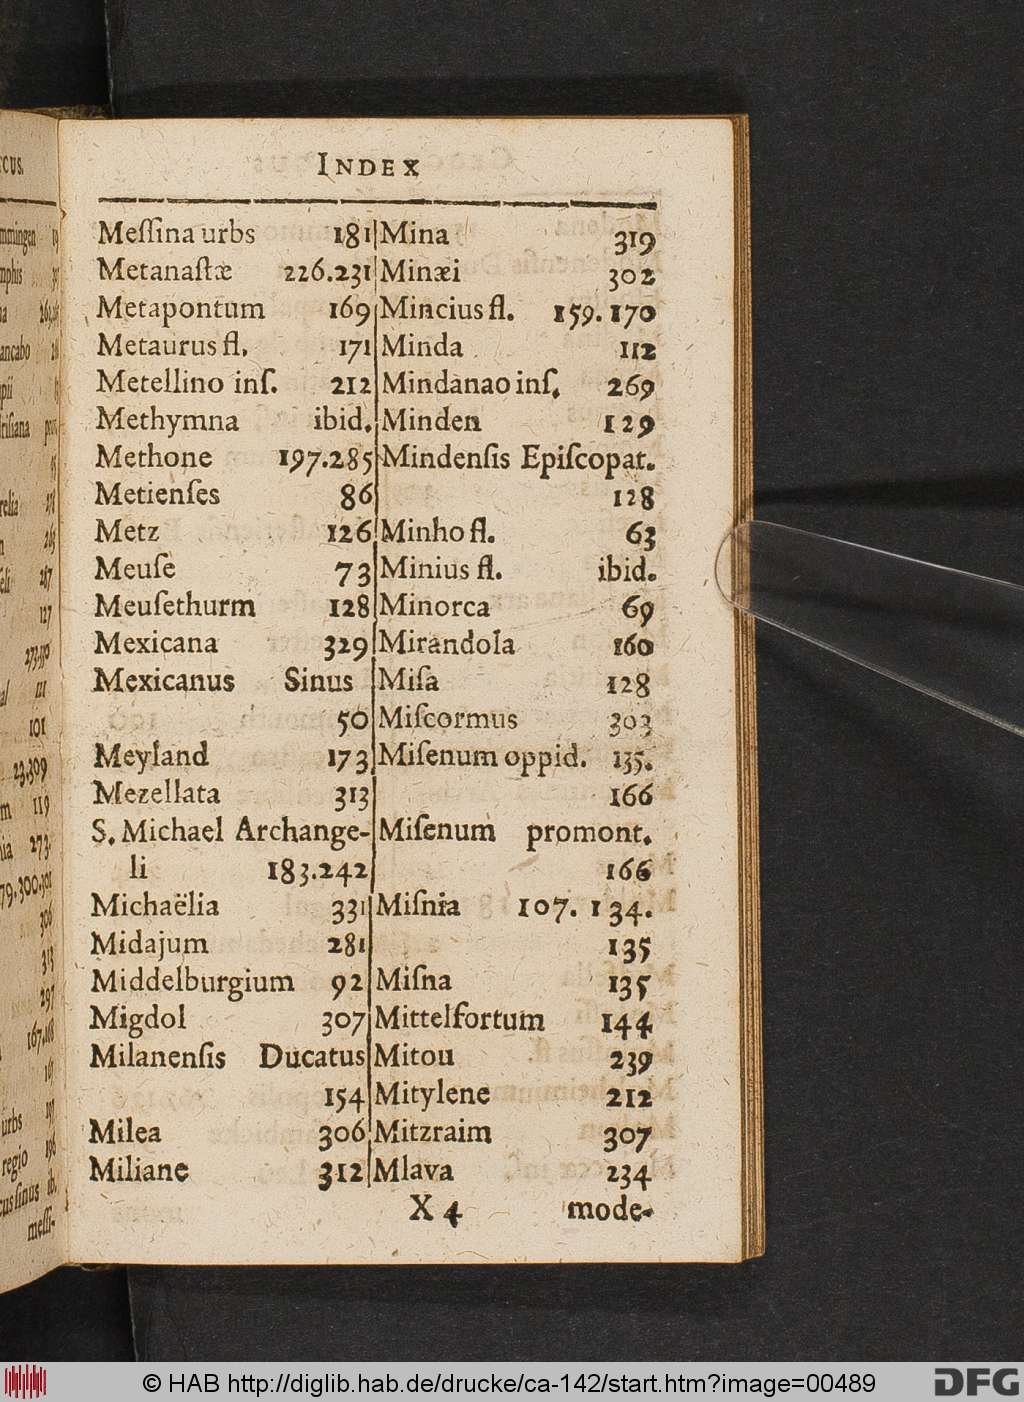 INDEX
Meſſina urbs 181
Metanaſtæ 226.231
Metapontum 169
Metaurus fl. 171
Metellino inſ. 212
Methymna ibid.
Methone 197.285
Metienſes 86
Metz 126
Meuſe 73
Meuſethurm 128
Mexicana 329
Mexicanus Sinus
50
Meyland 173
Mezellata 313
S. Michael Archange-
li 183.242
Michaëlia 331
Midajum 281
Middelburgium 92
Migdol 307
Milanenſis Ducatus
154
Milea 306
Miliane 312
Mina 319
Minæi 302
Mincius fl. 159.170
Minda 112
Mindanao inſ. 269
Minden 129
Mindenſis Epiſcopat.
128
Minho fl. 63
Minius fl. ibid.
Minorca 69
Mirandola 160
Miſa 128
Miſcormus 303
Miſenum oppid. 135.
166
Miſenum promont.
166
Miſnia 107. 134.
135
Miſna 135
Mittelfortum 144
Mitou 239
Mitylene 212
Mitzraim 307
Mlava 234
X 4 mode-
© HAB http://diglib.hab.de/drucke/ca-142/start.htm?image=00489
DFG